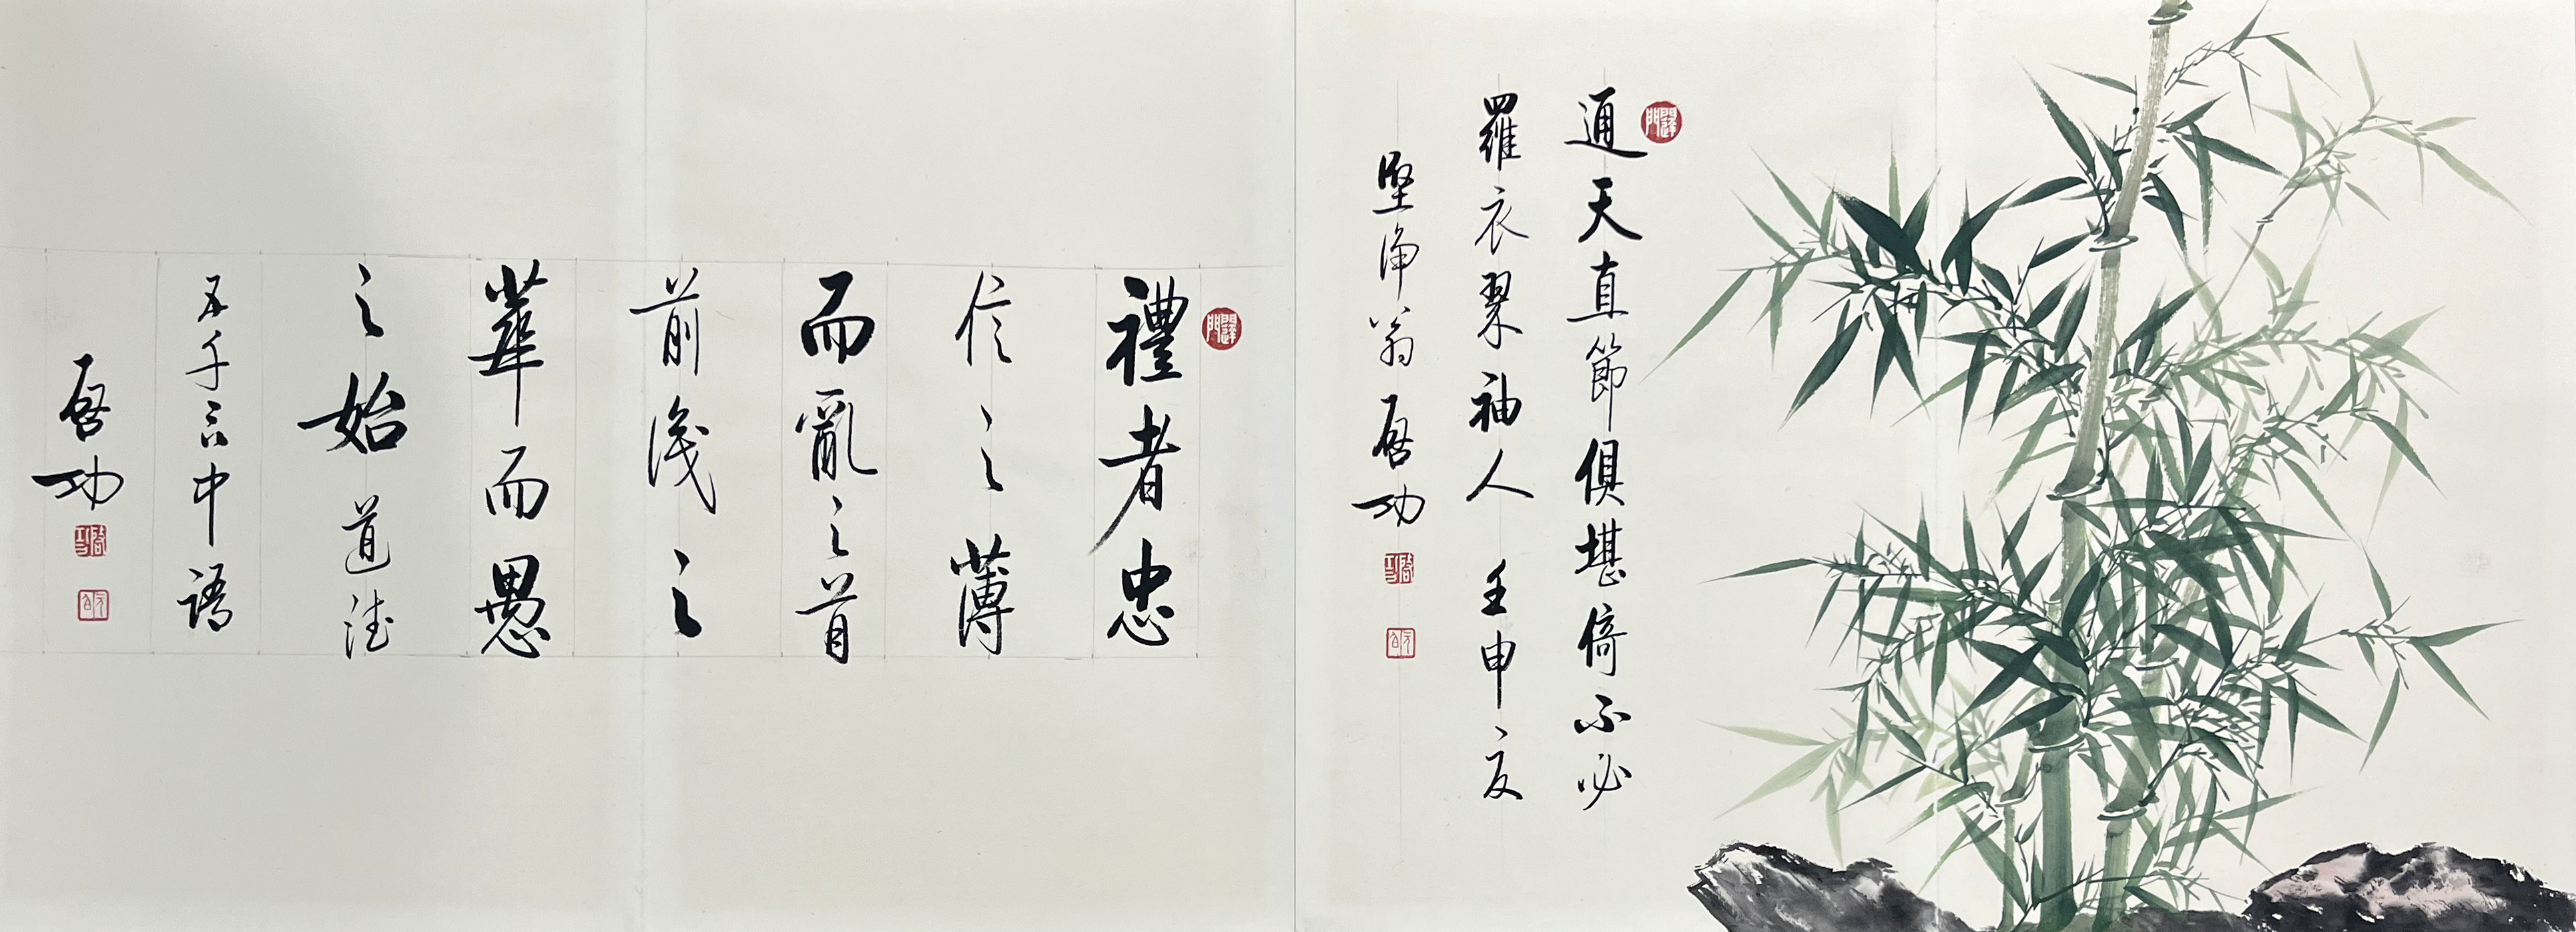 通天直節俱堪倚不必
羅衣翠袖人 壬申夏
堅淨翁啓功
禮者忠
信之薄
而亂之首
前識之
華而愚
之始 道德
五千言中語
啓功